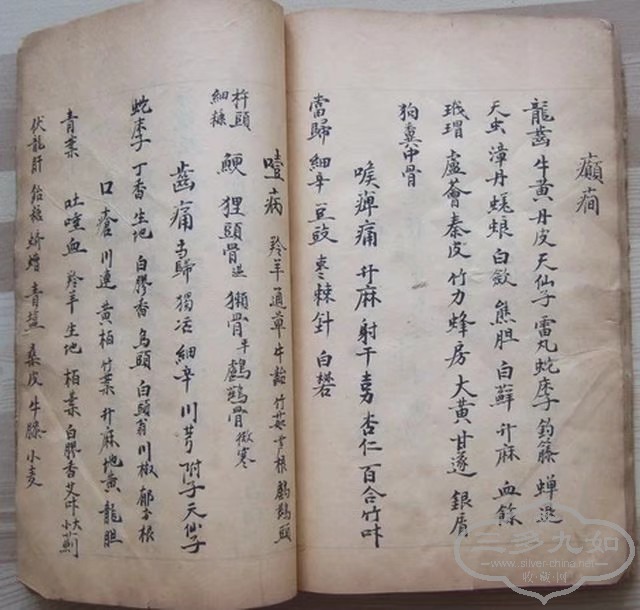 癲癇
龍齒 牛黄 丹皮 天仙子 雷丸 蛇床子 鈎籐 蟬退
天虫 漳丹 蜣蜋 白歛 熊胆 白蘚 升麻 血餘
玳瑁 盧薈 秦皮 竹力 蜂房 大黄 甘遂 銀屑
狗糞中骨
喉痺痛 升麻 射干 杏仁 百合 竹叶
當歸 細辛 豆豉 枣棘針 白礬
噎病 羚羊 通草 牛齝 竹茹 根 鸕鷀頭
杵頭細糠
鯁 狸頭骨温 獺骨平 鸕鷀骨微寒
齒痛 当歸 獨活 細辛 川芎 附子 天仙子
蛇床子 丁香 生地 白膠香 烏頭 白頭翁 川椒 郁李根
口瘡 川連 黄柏 竹葉 升麻 地黄 龍胆
青葉
吐唾血 羚羊 生地 柏葉 白膠香 艾叶 大小薊
伏龍肝 飴糖 蠐螬 青鹽 桑皮 牛膝 小麦
三多九如
www.silver-china.net
收藏网